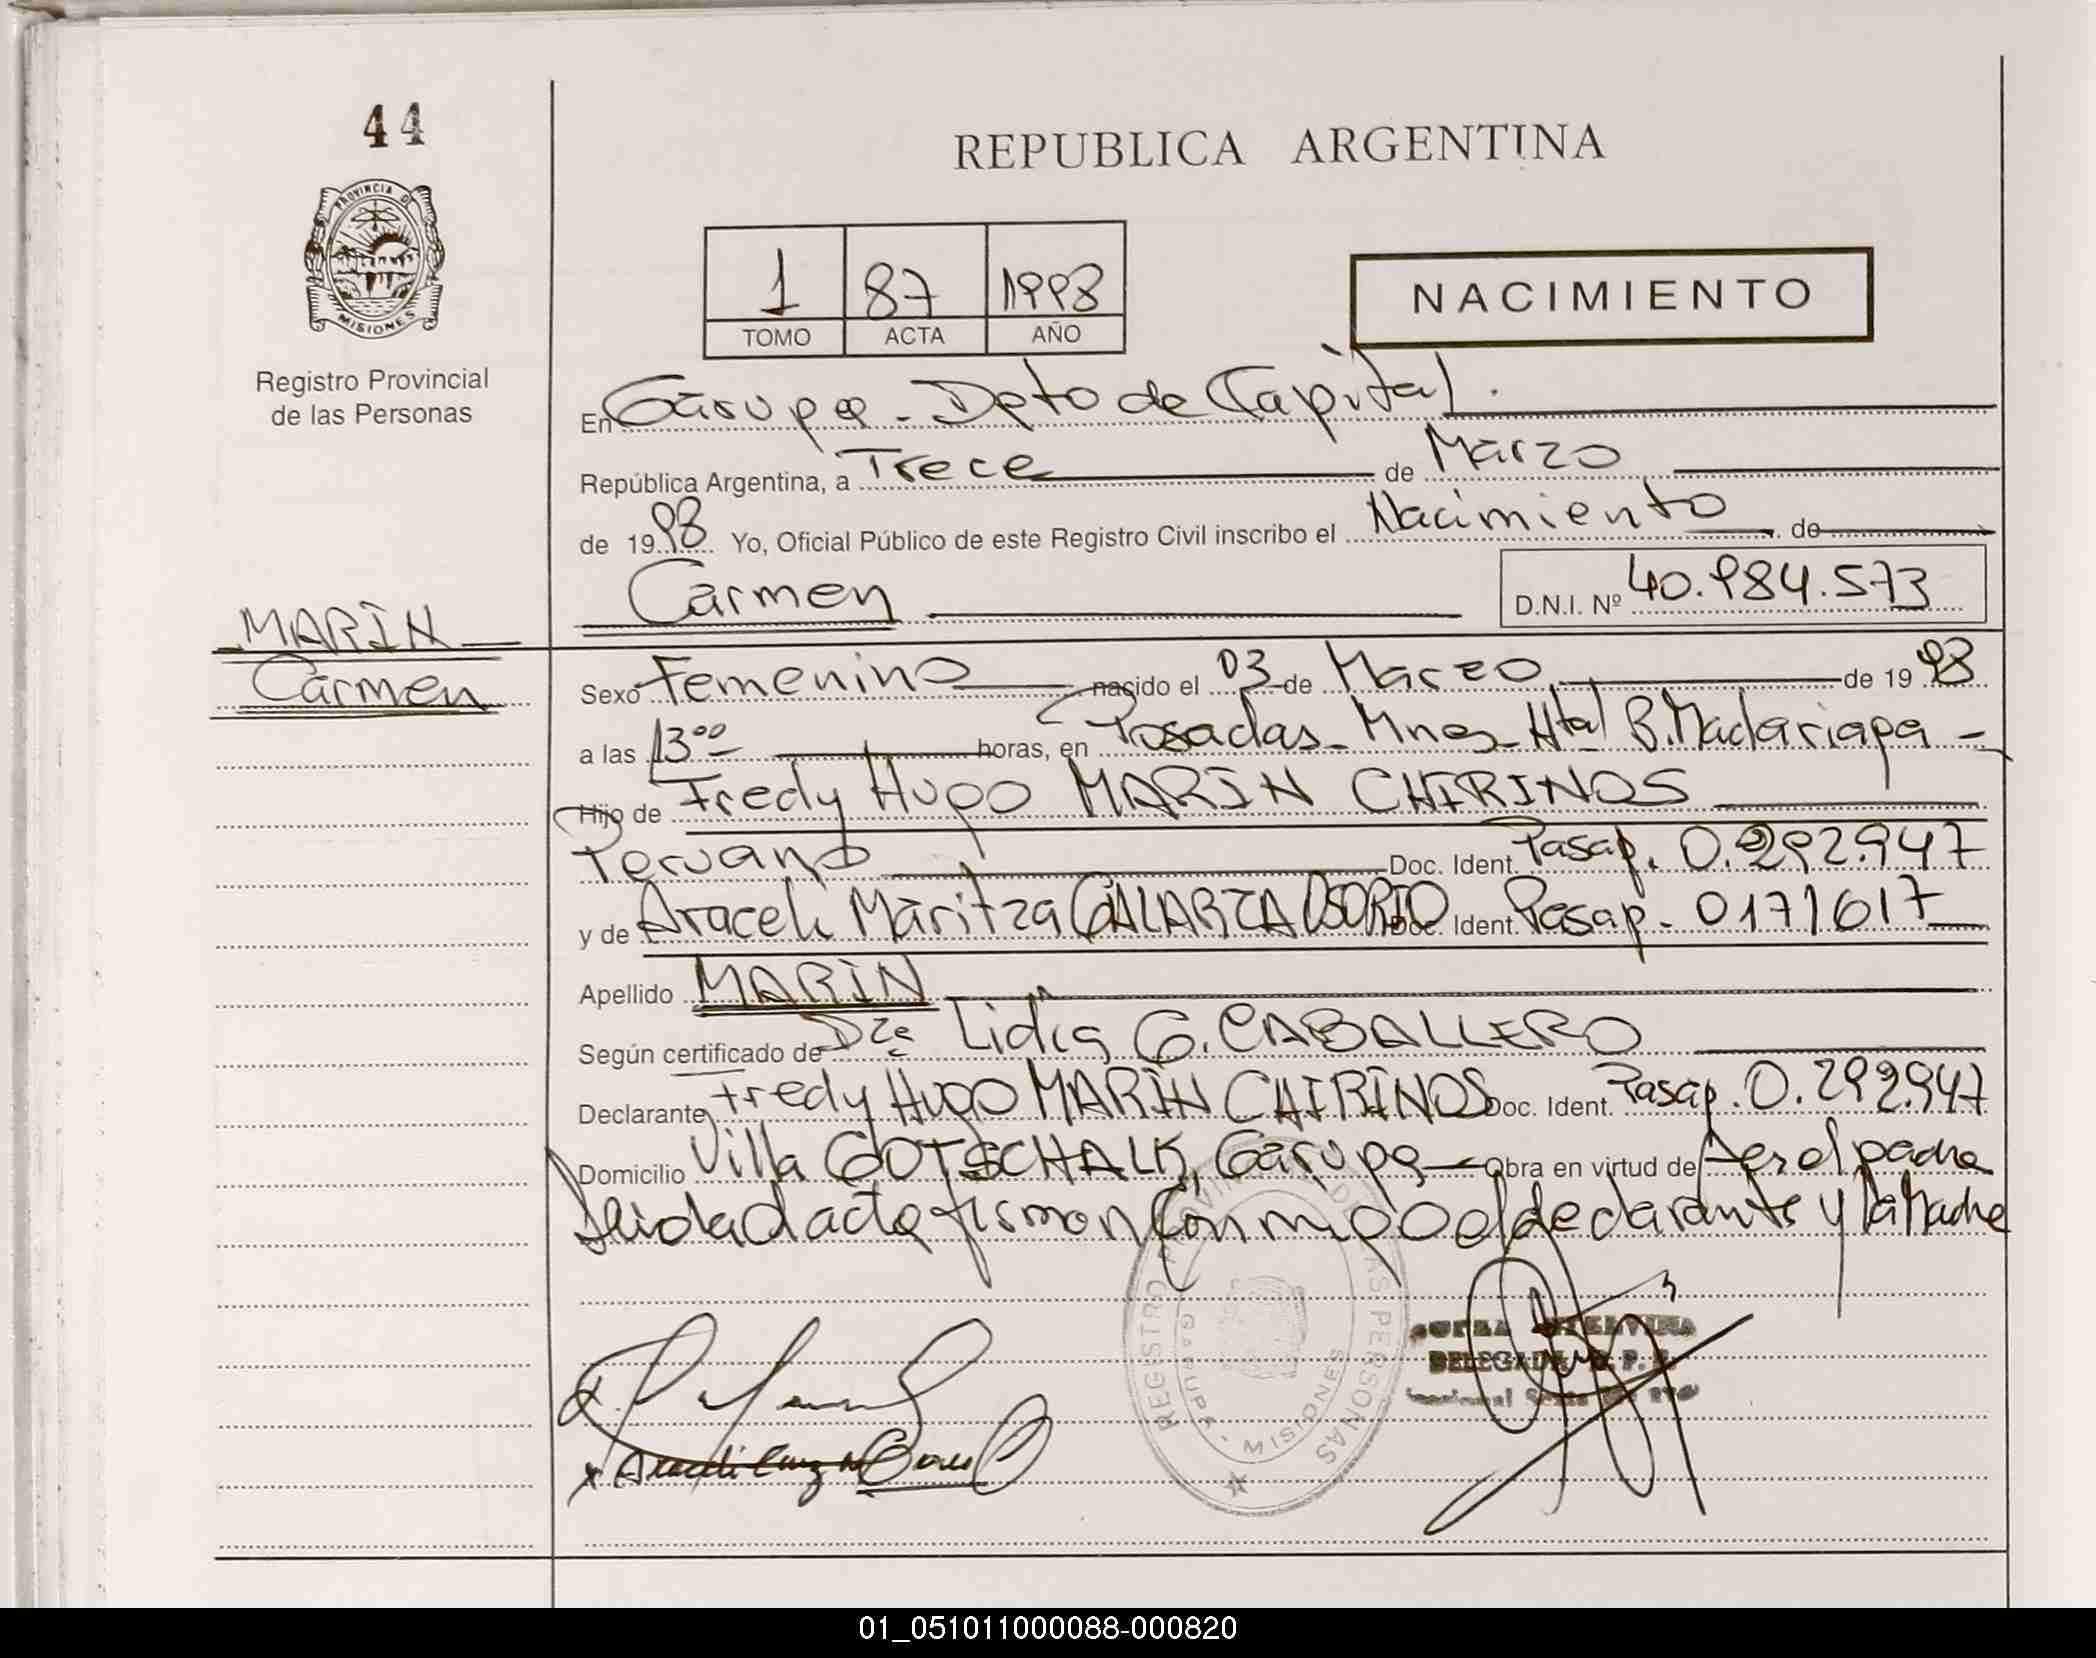 44
REPUBLICA ARGENTINA
PROVINCIA DE
MISIONES
Registro Provincial
de las Personas
1 87 1998
TOMO ACTA AÑO
NACIMIENTO
En Garupa - Dpto de Capital.
República Argentina, a Trece de Marzo
de 1998 Yo, Oficial Público de este Registro Civil inscribo el Nacimiento de
Carmen
D.N.I. Nº 40.984.573
MARIN
Carmen
Sexo Femenino nacido el 03 de Marzo de 1998
a las 13⁰⁰ horas, en Posadas - Mnes - Htal B. Madariaga -
Hijo de Fredy Hugo MARIN CHIRINOS
Peruano Doc. Ident. Pasap. 0.292.947
y de Araceli Maritza GALARZA OSORIO Doc. Ident. Pasap - 0171617
Apellido MARIN
Según certificado de Dra Lidia G. CABALLERO
Declarante Fredy Hugo MARIN CHIRINOS Doc. Ident. Pasap. 0.292.947
Domicilio Villa GOTSCHALK, Garupa - Obra en virtud de Ser el padre
Leida el acta firman conmigo el declarante y la Madre
REGISTRO PROVINCIAL DE LAS PERSONAS
GARUPA - MISIONES
DELEGADA R. P. P.
01_051011000088-000820